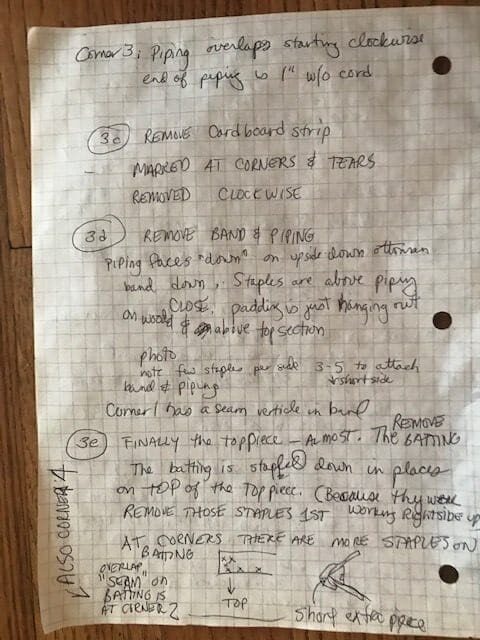 Corner 3: Piping overlaps starting clockwise
end of piping is 1" w/o cord
3c REMOVE Cardboard strip
- MARKED AT CORNERS & TEARS
REMOVED CLOCKWISE
3d REMOVE BAND & PIPING
piping faces "down" on upside down ottoman
band down. Staples are above piping
CLOSE.
on wood & padding is just hanging out
above top section
photo
note few staples per side 3-5 to attach
band & piping ↓ short side
Corner 1 has a seam verticle in band
REMOVE
3e FINALLY the top piece - Almost. The BATTING
The batting is stapled down in places
on TOP of the Top piece. (Because they were
REMOVE THOSE STAPLES 1ST working Rightside up
AT CORNERS THERE ARE MORE STAPLES ON
BATTING
OVERLAP
"SEAM" ON
BATTING IS
AT CORNER 2
xx
x x x
↓
TOP
Short extra piece
↙ ALSO CORNER 4